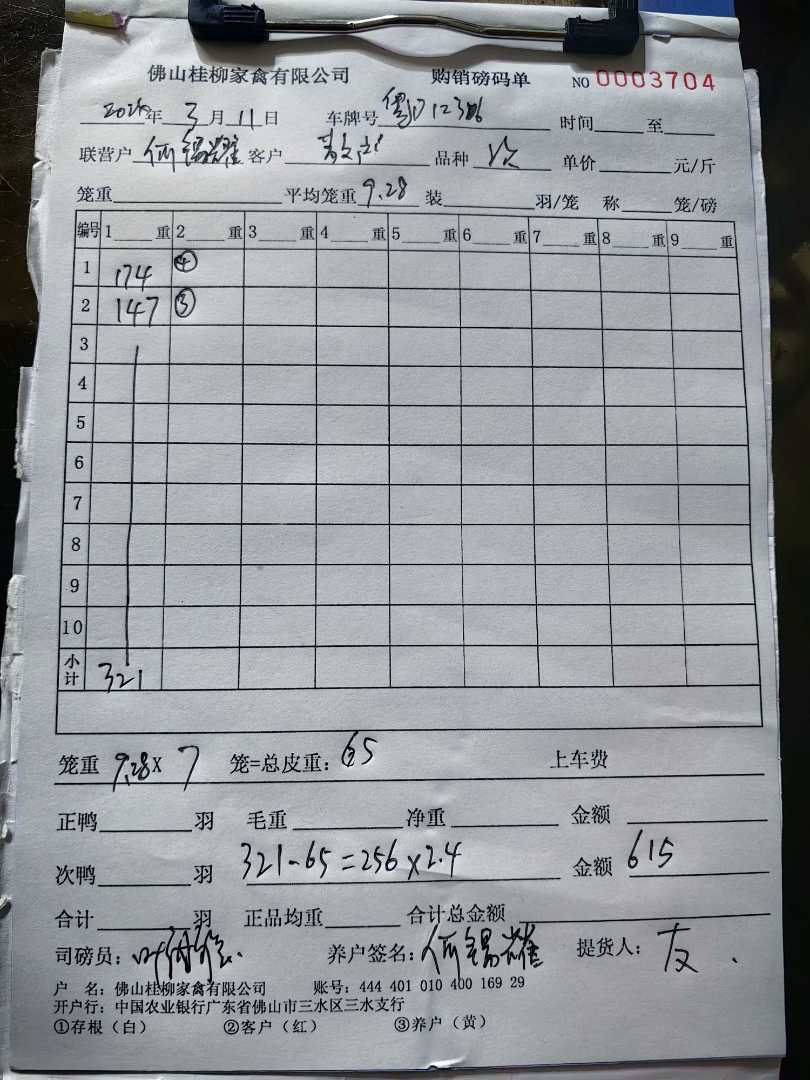 佛山桂柳家禽有限公司 购销磅码单 NO 0003704
年 3 月 11 日 车牌号 时间 至
联营户 何锡耀 客户 品种 次 单价 元/斤
笼重 平均笼重 9.28 装 羽/笼 称 笼/磅
编号 1 重 2 重 3 重 4 重 5 重 6 重 7 重 8 重 9 重
1 174 ④
2 147 ③
3
4
5
6
7
8
9
10
小计 321
笼重 9.28 x 7 笼=总皮重: 65 上车费
正鸭 羽 毛重 净重 金额
次鸭 羽 321-65=256×2.4 金额 615
合计 羽 正品均重 合计总金额
司磅员: 养户签名: 何锡耀 提货人: 友
户 名: 佛山桂柳家禽有限公司 账号: 444 401 010 400 169 29
开户行: 中国农业银行广东省佛山市三水区三水支行
①存根(白) ②客户(红) ③养户(黄)